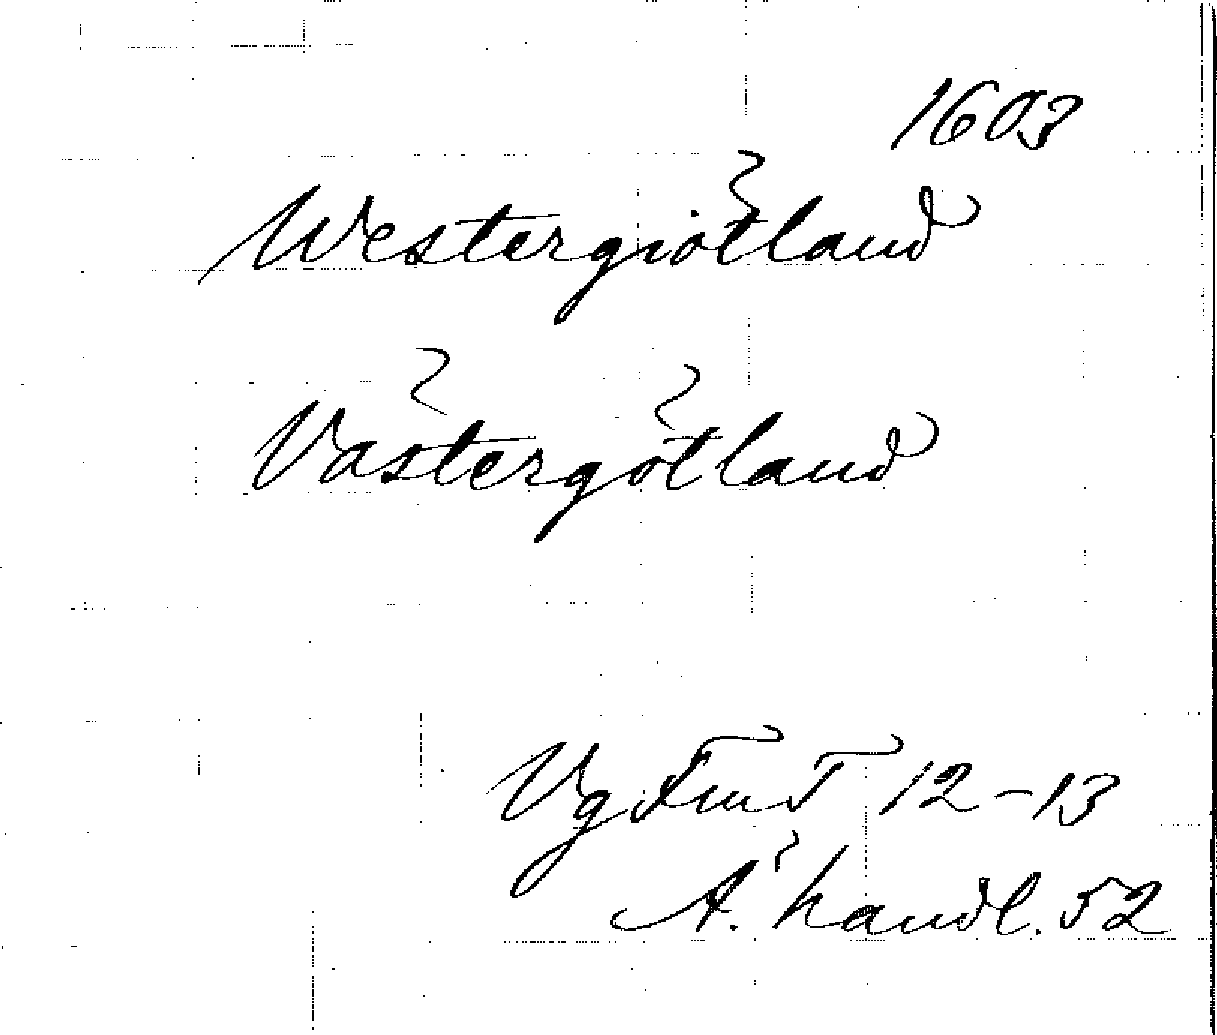 1603
Westergiötland
Västergötland
Vg FmT 12-13
A. handl. 52